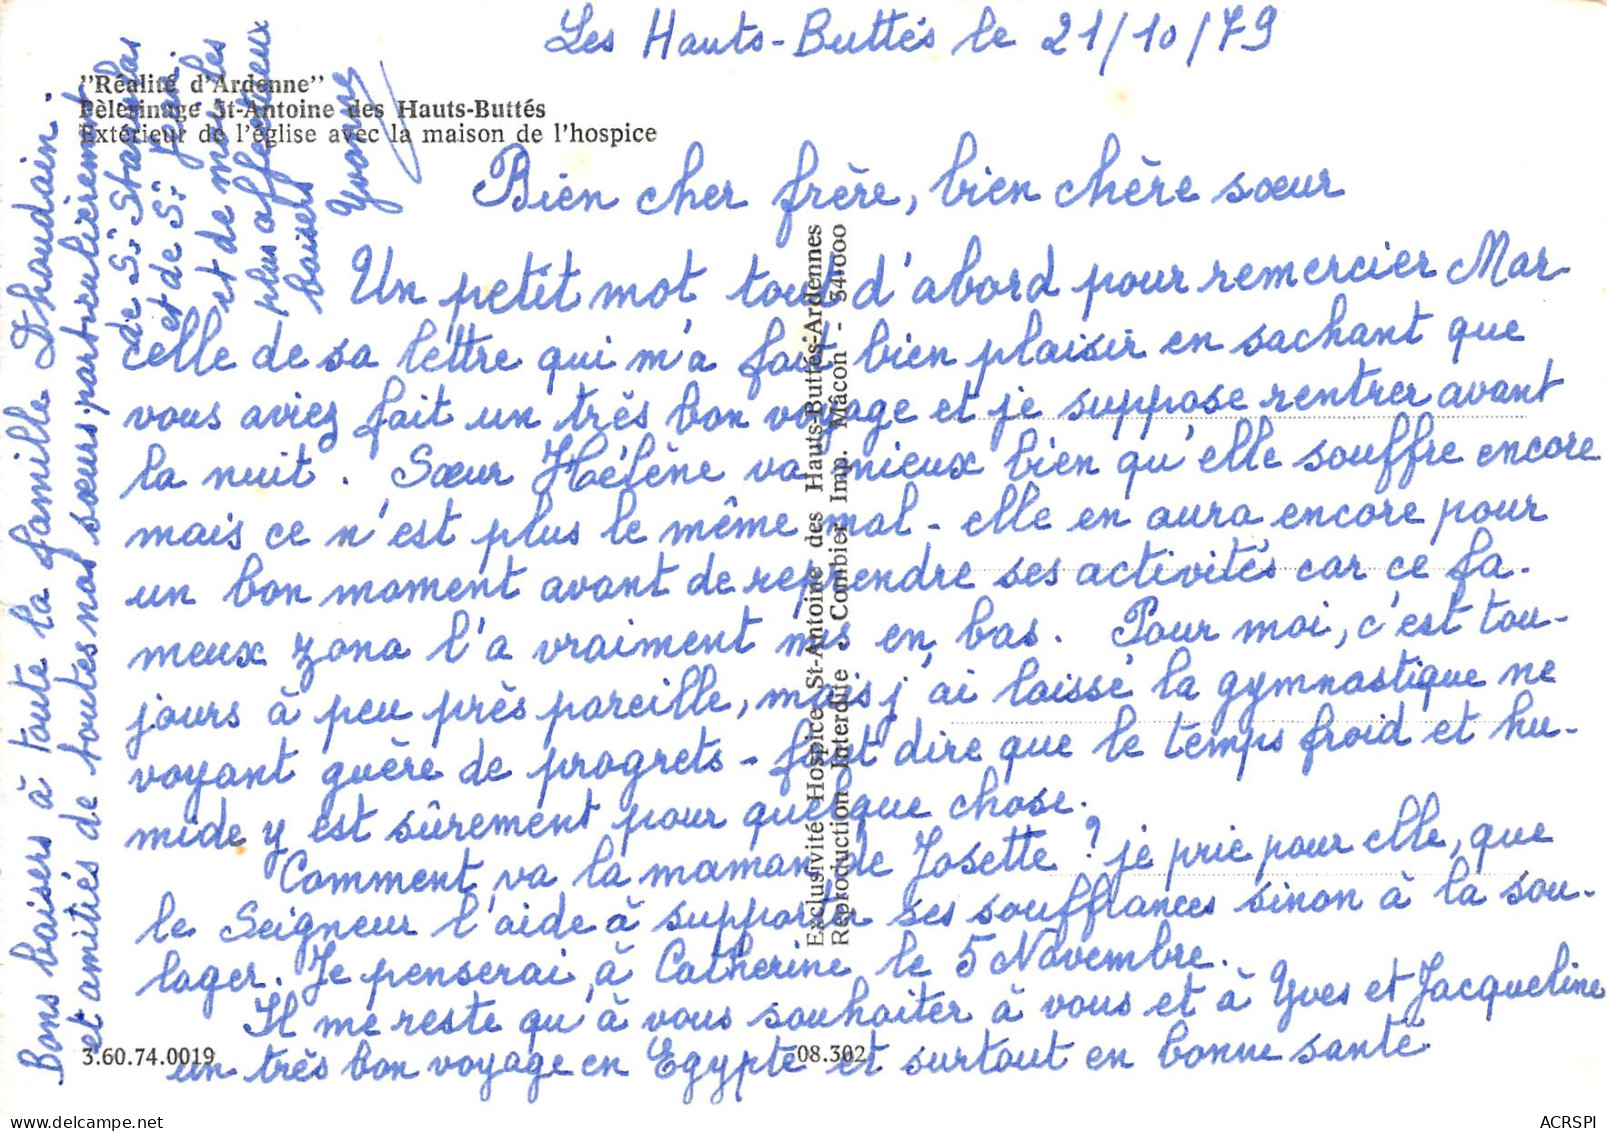 Les Hauts-Buttés le 21/10/79
"Réalité d'Ardenne"
Pèlerinage St-Antoine des Hauts-Buttés
Extérieur de l'église avec la maison de l'hospice
Bien cher frère, bien chère sœur
Un petit mot tout d'abord pour remercier Mar-
celle de sa lettre qui m'a fait bien plaisir en sachant que
vous aviez fait un très bon voyage et je suppose rentrer avant
la nuit. Sœur Hélène va mieux bien qu'elle souffre encore
mais ce n'est plus le même mal - elle en aura encore pour
un bon moment avant de reprendre ses activités car ce fa-
meux zona l'a vraiment mis en bas. Pour moi, c'est tou-
jours à peu près pareille, mais j'ai laissé la gymnastique ne
voyant guère de progrets - faut dire que le temps froid et hu-
mide y est sûrement pour quelque chose.
Comment va la maman de Josette ? je prie pour elle, que
le Seigneur l'aide à supporter ses souffrances sinon à la sou-
lager. Je penserai à Catherine le 5 Novembre.
Il me reste qu'à vous souhaiter à vous et à Yves et Jacqueline
un très bon voyage en Egypte et surtout en bonne santé
Bons baisers à toute la famille Dhoudain.
et amitiés de toutes nos sœurs particulièrement
de Sr Stanislas
et de Sr Jean.
et de moi les
plus affectueux
baisers
Yvonne
Exclusivité Hospice St-Antoine des Hauts-Buttés-Ardennes
Reproduction Interdite Combier Imp. Mâcon - 34000
3.60.74.0019
08.302
ACRSPI